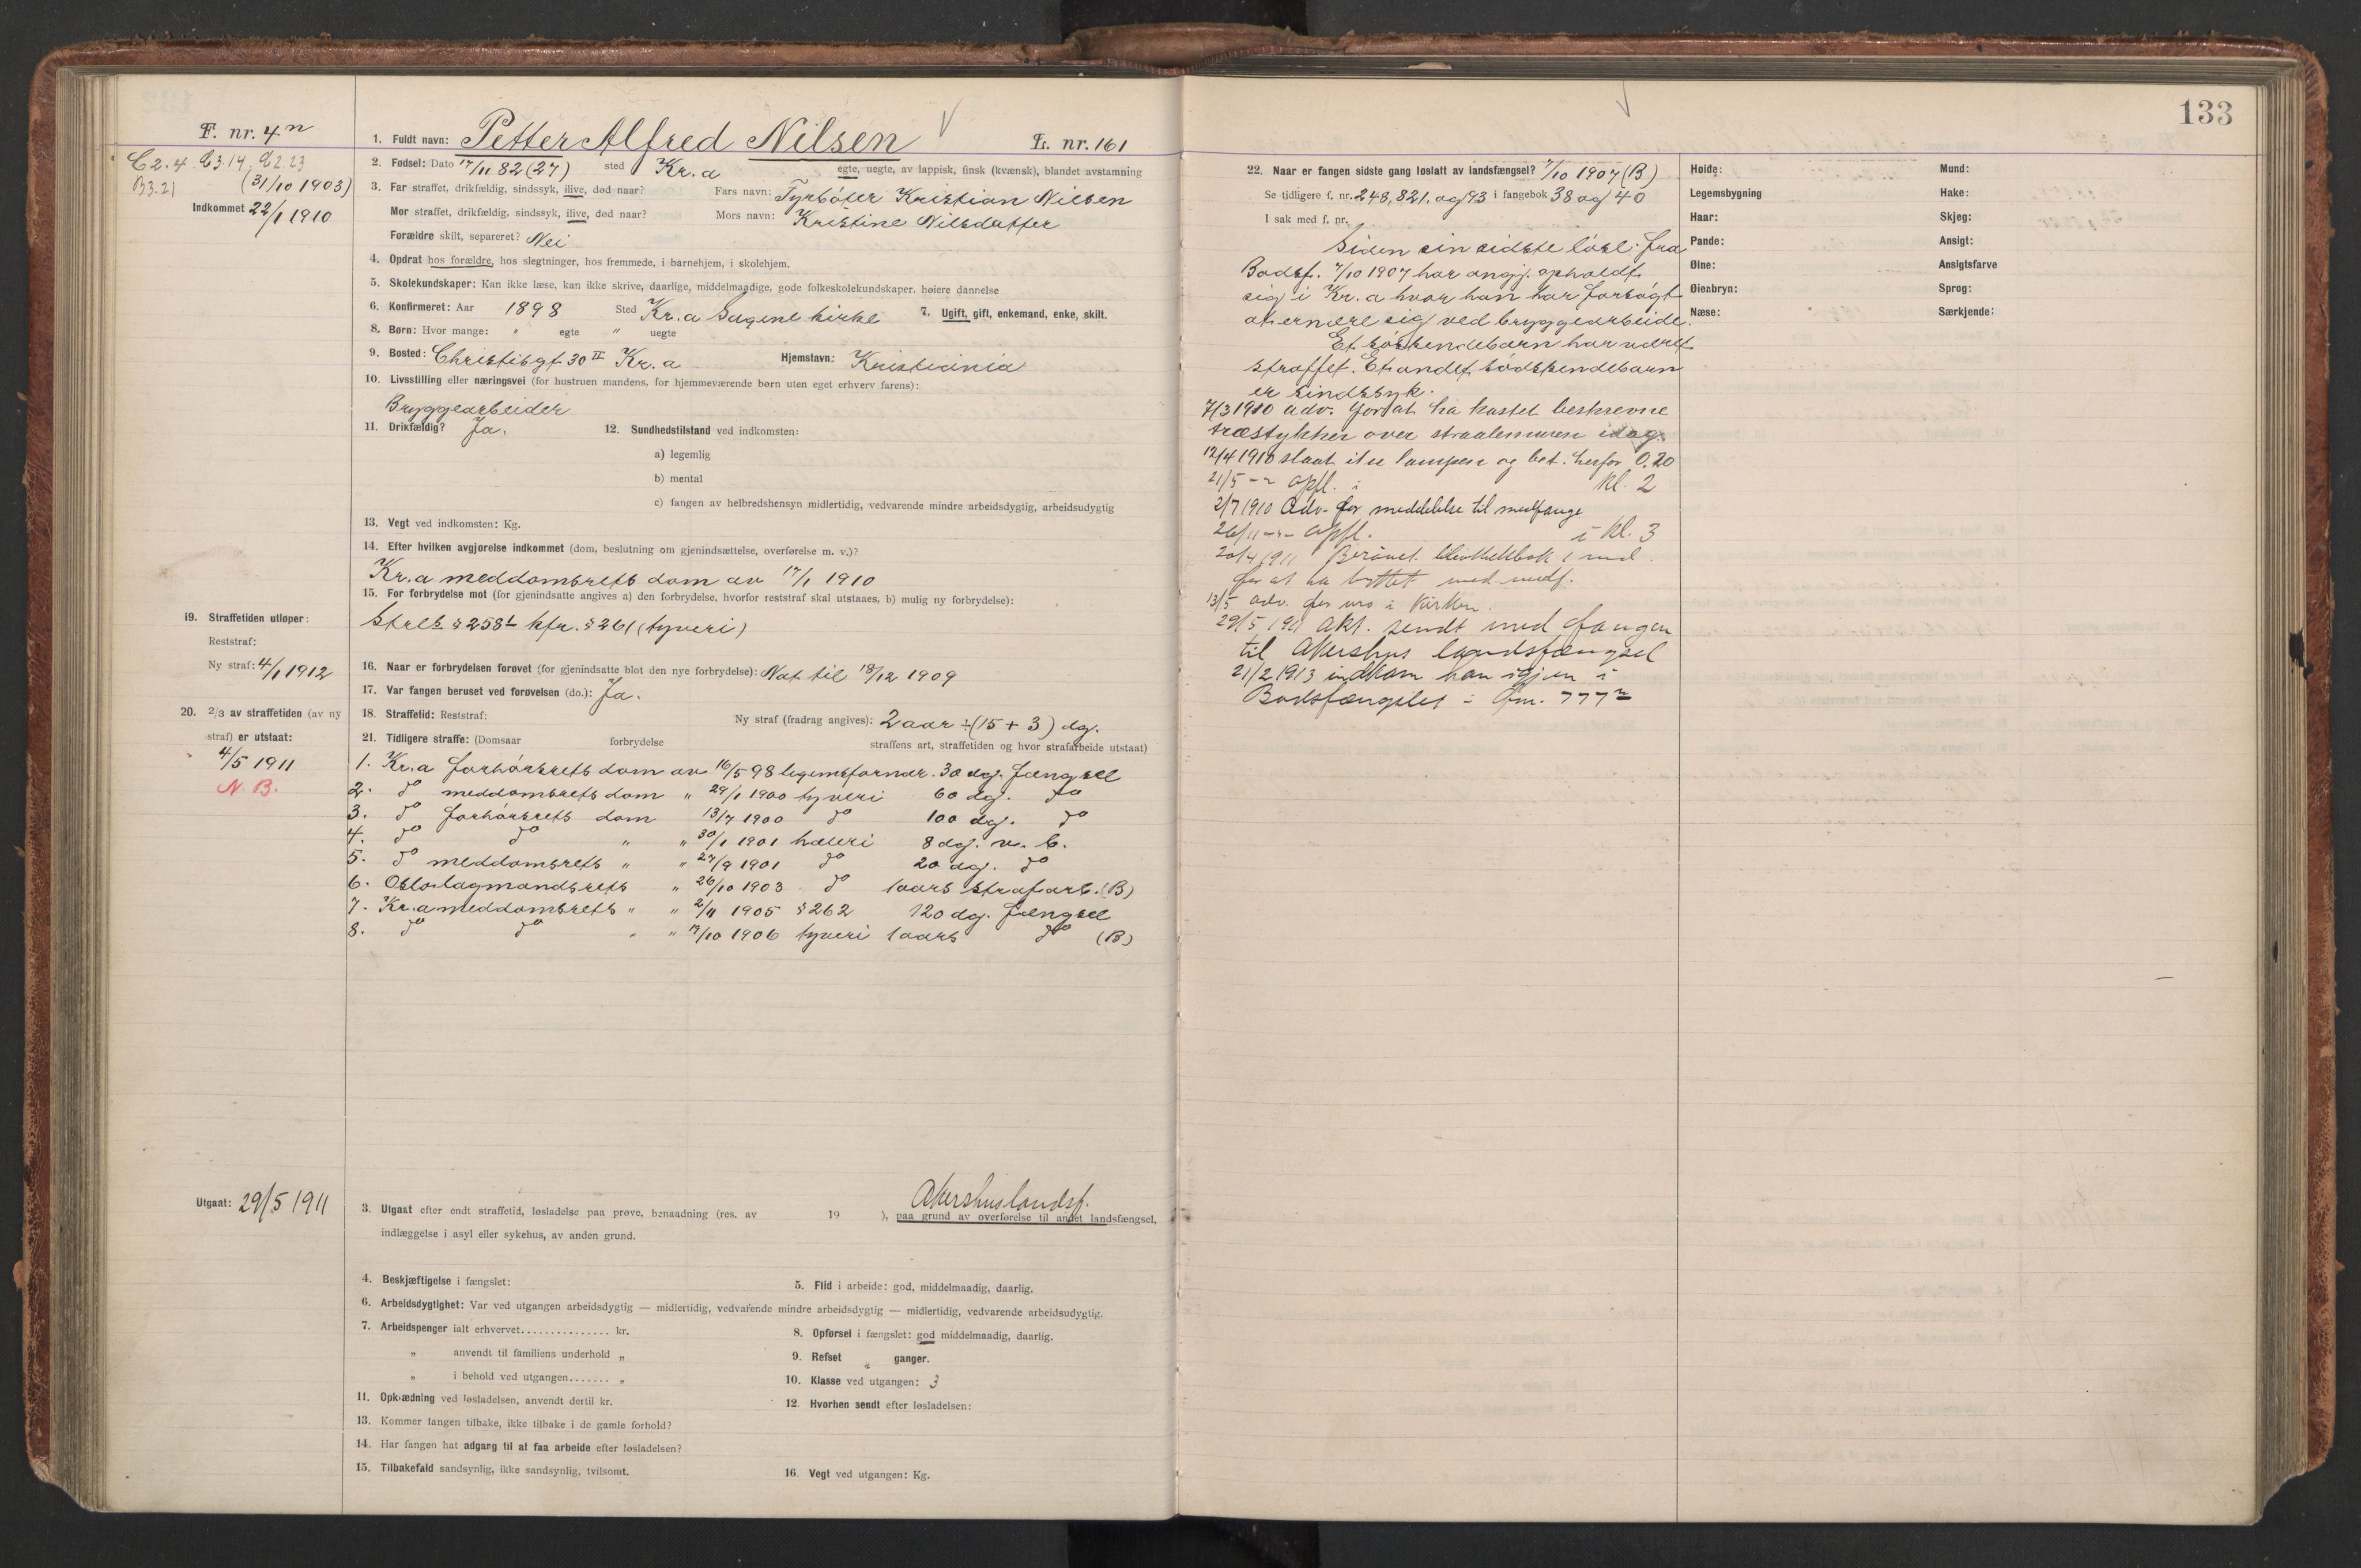 F. nr. 4n
C2.4. C3.14. C2.23
B3.21 (31/10 1903)
Indkommet 22/1 1910
1. Fuldt navn: Petter Alfred Nilsen L. nr. 161
2. Fødsel: Dato 17/11 82 (27) sted Kr.a egte, uegte, av lappisk, finsk (kvænsk), blandet avstamning
3. Far straffet, drikfældig, sindssyk, ilive, død naar? Fars navn: Fyrbøter Kristian Nilsen
Mor straffet, drikfældig, sindssyk, ilive, død naar? Mors navn: Kristine Nilsdatter
Forældre skilt, separeret? Nei
4. Opdrat hos forældre, hos slegtninger, hos fremmede, i barnehjem, i skolehjem.
5. Skolekundskaper: Kan ikke læse, kan ikke skrive, daarlige, middelmaadige, gode folkeskolekundskaper. høiere dannelse
6. Konfirmeret: Aar 1898 Sted Kr.a Sagene kirke 7. Ugift, gift, enkemand, enke, skilt.
8. Børn: Hvor mange: " egte " uegte
9. Bosted: Christiesgt 30 II Kr.a Hjemstavn: Kristiania
10. Livsstilling eller næringsvei (for hustruen mandens, for hjemmeværende børn uten eget erhverv farens):
Bryggearbeider
11. Drikfældig? Ja. 12. Sundhedstilstand ved indkomsten:
a) legemlig
b) mental
c) fangen av helbredshensyn midlertidig, vedvarende mindre arbeidsdygtig, arbeidsudygtig
13. Vegt ved indkomsten: Kg.
14. Efter hvilken avgjørelse indkommet (dom, beslutning om gjenindsættelse, overførelse m. v.)?
Kr.a meddomsrets dom av 17/1 1910
15. For forbrydelse mot (for gjenindsatte angives a) den forbrydelse, hvorfor reststraf skal utstaaes, b) mulig ny forbrydelse):
Strl § 258 kfr. § 261 (tyveri)
16. Naar er forbrydelsen forøvet (for gjenindsatte blot den nye forbrydelse): Nat til 18/12 1909
17. Var fangen beruset ved forøvelsen (do.): Ja.
18. Straffetid: Reststraf: Ny straf (fradrag angives): 2 aar ÷ (15 + 3) dg.
19. Straffetiden utløper:
Reststraf:
Ny straf: 4/1 1912
20. 2/3 av straffetiden (av ny
straf) er utstaat:
4/5 1911
N.B.
21. Tidligere straffe: (Domsaar forbrydelse straffens art, straffetiden og hvor strafarbeide utstaat)
1. Kr.a forhørsrets dom av 16/5 98 legemsfornær. 30 dg. fængsel
2. do meddomsrets dom " 29/1 1900 tyveri 60 dg. do
3. do forhørsrets dom 13/7 1900 do 100 dg. do
4. do do " " 30/1 1901 hæleri 8 dg. v. b.
5. do meddomsrets " " 27/9 1901 do 20 dg. do
6. Oslo lagmandsrets " 26/10 1903 do 1 aars strafarb. (B)
7. Kr.a meddomsrets " " 2/11 1905 § 262 120 dg. fængsel
8. do do " " 19/10 1906 tyveri 1 aars do (B)
Utgaat: 29/5 1911
Akershus landsf.
3. Utgaat efter endt straffetid, løsladelse paa prøve, benaadning (res. av 19 ), paa grund av overførelse til andet landsfængsel,
indlæggelse i asyl eller sykehus, av anden grund.
4. Beskjæftigelse i fængslet: 5. Flid i arbeide: god, middelmaadig, daarlig.
6. Arbeidsdygtighet: Var ved utgangen arbeidsdygtig — midlertidig, vedvarende mindre arbeidsdygtig — midlertidig, vedvarende arbeidsudygtig.
7. Arbeidspenger ialt erhvervet............... kr. 8. Opførsel i fængslet: god middelmaadig, daarlig.
" anvendt til familiens underhold " 9. Refset " ganger.
" i behold ved utgangen....... " 10. Klasse ved utgangen: 3
11. Opklædning ved løsladelsen, anvendt dertil kr. 12. Hvorhen sendt efter løsladelsen:
13. Kommer fangen tilbake, ikke tilbake i de gamle forhold?
14. Har fangen hat adgang til at faa arbeide efter løsladelsen?
15. Tilbakefald sandsynlig, ikke sandsynlig, tvilsomt. 16. Vegt ved utgangen: Kg.
133
22. Naar er fangen sidste gang løslatt av landsfængsel? 7/10 1907 (B)
Se tidligere f. nr. 248, 821. og 93 i fangebok 38 og 40
I sak med f. nr.
Siden sin sidste løsl. fra
Bodsf. 7/10 1907 har angj. opholdt
sig i Kr.a hvor han har forsøgt
at ernære sig ved bryggearbeide.
Et søskendebarn har været
straffet. Et andet sødskendebarn
er sindssyk.
7/3 1910 adv. for at ha kastet beskrevne
træstykker over straalemuren idag.
12/4 1910 slaat itu lampen og bet. herfor 0.20
21/5 -"- opfl. i kl. 2
2/7 1910 Adv. for meddelelse til medfange
26/11 -"- opfl. i kl. 3
20/4 1911 Berøvet bibliothekbok 1 md.
for at ha byttet med medf.
13/5 adv. for uro i Kirken.
29/5 1911 Akt. sendt med fangen
til Akershus landsfængsel
21/2 1913 indkom han igjen i
Bodsfængslet - fm. 777n
Høide: Mund:
Legemsbygning Hake:
Haar: Skjeg:
Pande: Ansigt:
Øine: Ansigtsfarve
Øienbryn: Sprog:
Næse: Særkjende: